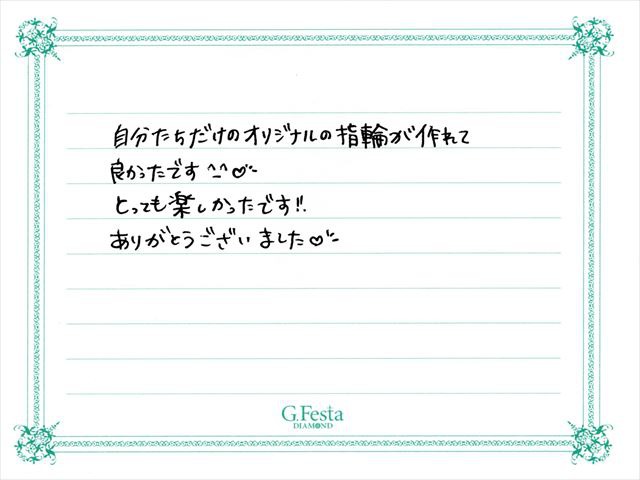 自分たちだけのオリジナルの指輪が作れて
良かったです^_^♡
とっても楽しかったです!!
ありがとうございました♡
G.Festa
DIAMOND